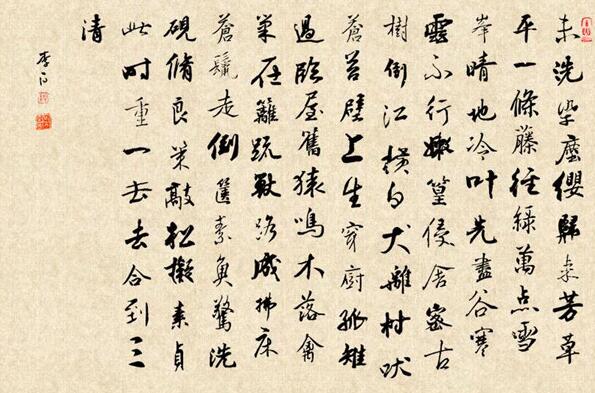 未洗染塵纓歸来芳草
平一條藤徑綠萬点雪
峯晴地冷叶先盡谷寒
雲不行嫩篁侵舍密古
樹倒江横白犬離村吠
蒼苔壁上生穿廚孤雉
過臨屋舊猿鳴木落禽
巢在籬疏獸路成拂床
蒼鼠走倒篋素魚驚洗
硯脩良策敲松擬素貞
此时重一去去合到三
清
李白